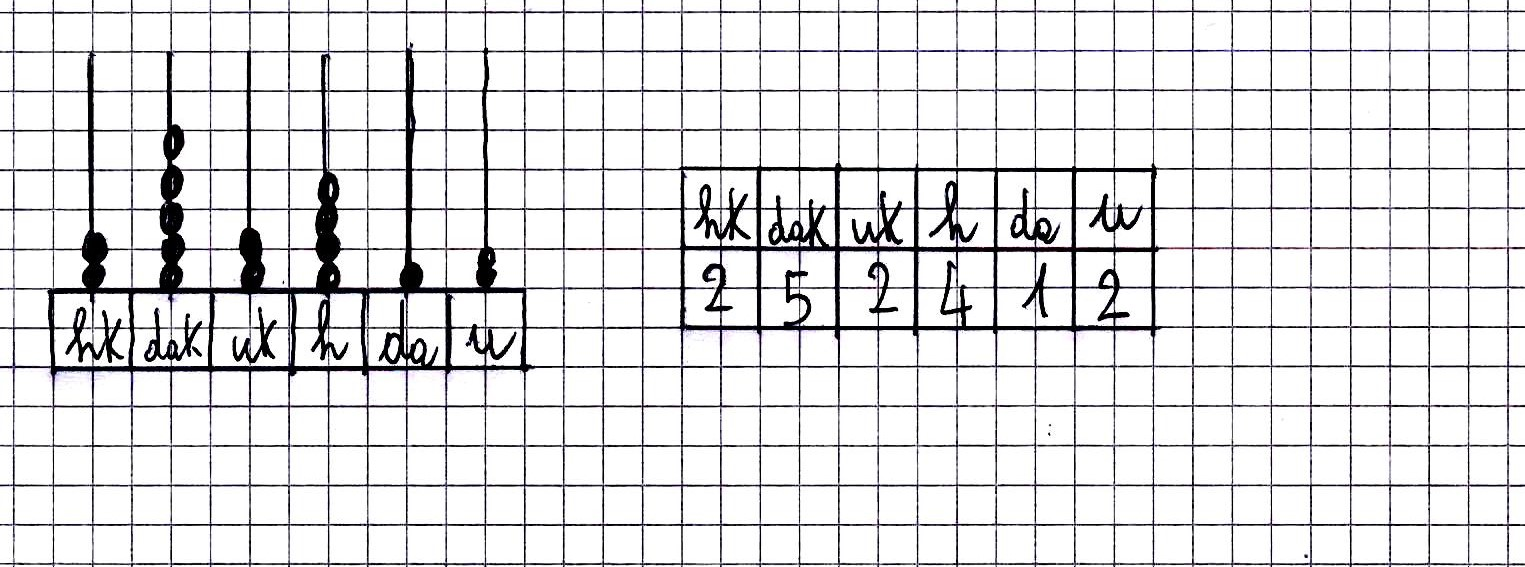 hk dak uk h da u
hk dak uk h da u
2 5 2 4 1 2